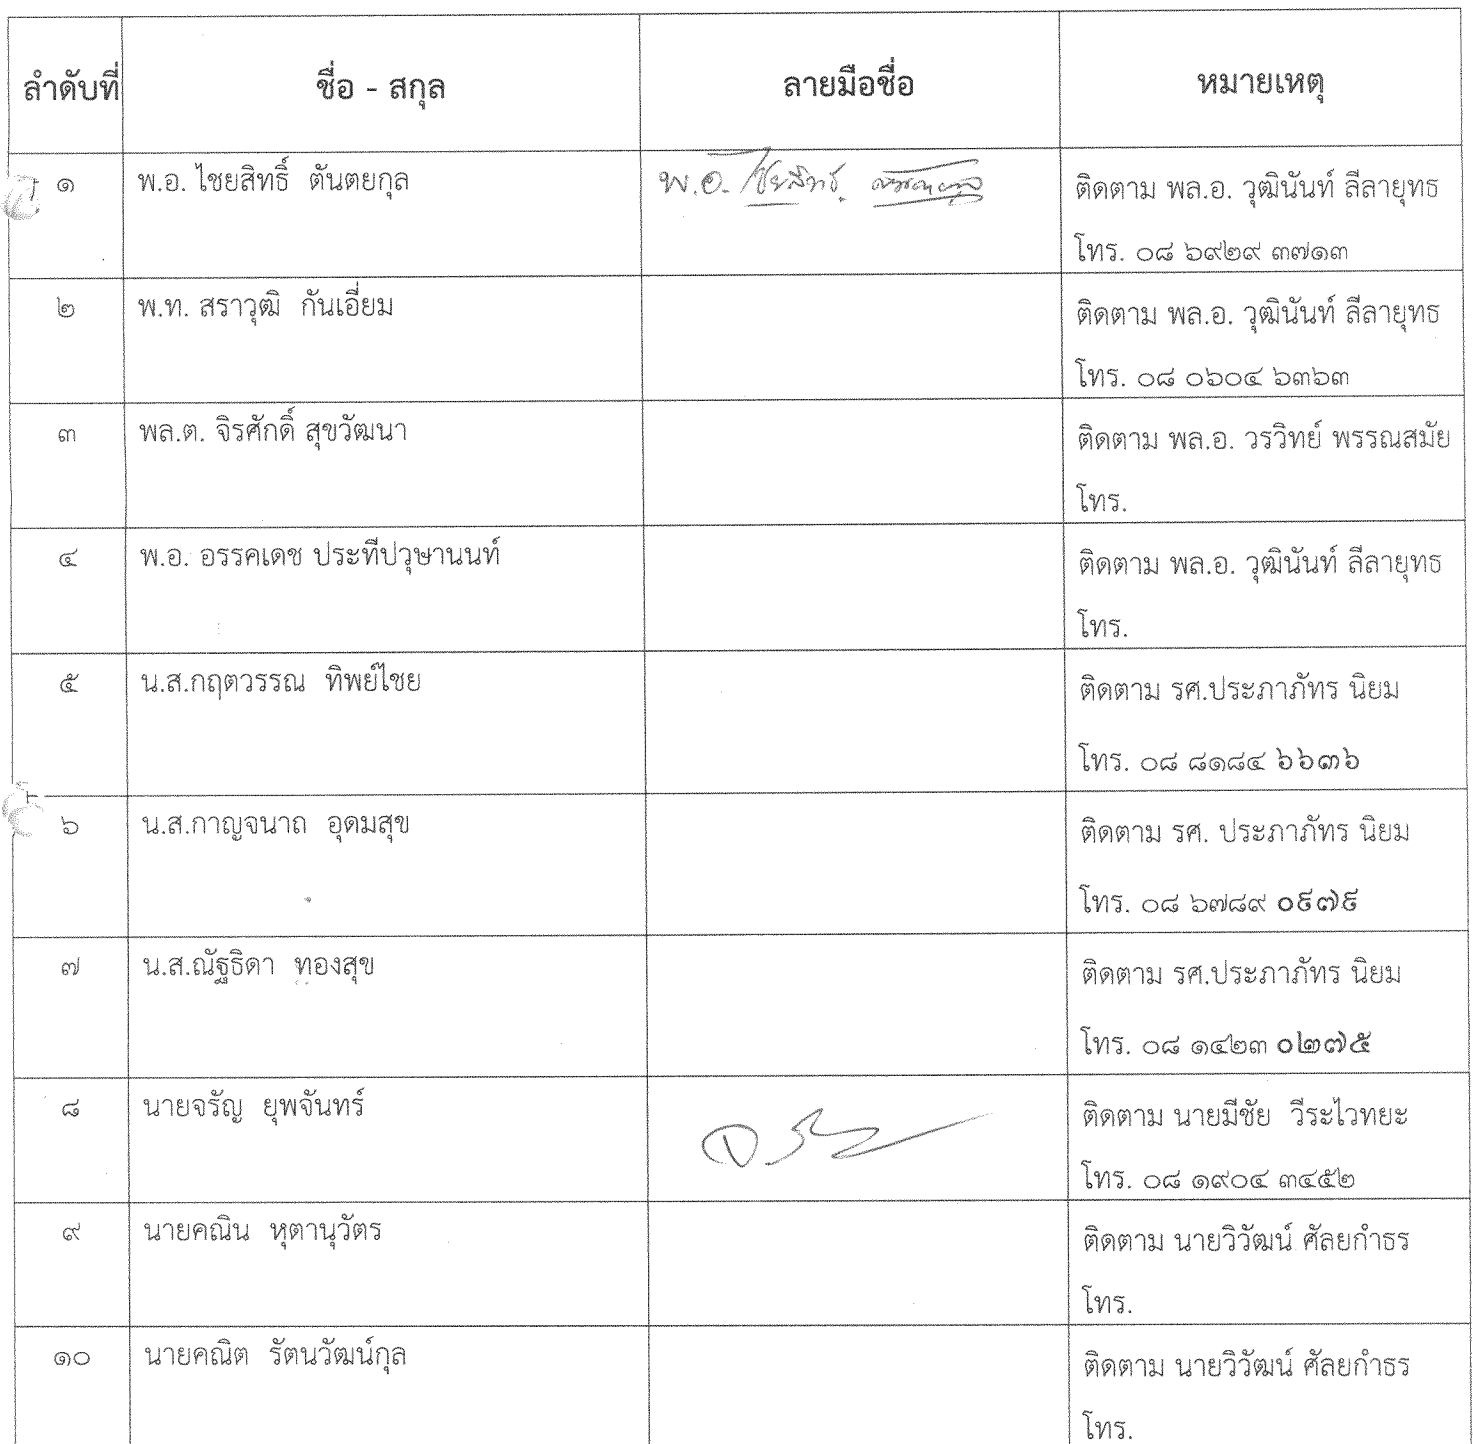 ลำดับที่ ชื่อ - สกุล ลายมือชื่อ หมายเหตุ
๑ พ.อ. ไชยสิทธิ์ ตันตยกุล พ.อ. ไชยสิทธิ์ ตันตยกุล ติดตาม พล.อ. วุฒินันท์ ลีลายุทธ
โทร. ๐๘ ๖๙๒๙ ๓๗๑๓
๒ พ.ท. สราวุฒิ กันเอี่ยม ติดตาม พล.อ. วุฒินันท์ ลีลายุทธ
โทร. ๐๘ ๐๖๐๔ ๖๓๖๓
๓ พล.ต. จิรศักดิ์ สุขวัฒนา ติดตาม พล.อ. วรวิทย์ พรรณสมัย
โทร.
๔ พ.อ. อรรคเดช ประทีปวุษานนท์ ติดตาม พล.อ. วุฒินันท์ ลีลายุทธ
โทร.
๕ น.ส.กฤตวรรณ ทิพย์ไชย ติดตาม รศ.ประภาภัทร นิยม
โทร. ๐๘ ๘๑๘๔ ๖๖๓๖
๖ น.ส.กาญจนาถ อุดมสุข ติดตาม รศ. ประภาภัทร นิยม
โทร. ๐๘ ๖๗๘๙ ๐๙๗๙
๗ น.ส.ณัฐธิดา ทองสุข ติดตาม รศ.ประภาภัทร นิยม
โทร. ๐๘ ๑๔๒๓ ๐๒๗๕
๘ นายจรัญ ยุพจันทร์ ติดตาม นายมีชัย วีระไวทยะ
โทร. ๐๘ ๑๙๐๔ ๓๔๕๒
๙ นายคณิน หุตานุวัตร ติดตาม นายวิวัฒน์ ศัลยกำธร
โทร.
๑๐ นายคณิต รัตนวัฒน์กุล ติดตาม นายวิวัฒน์ ศัลยกำธร
โทร.